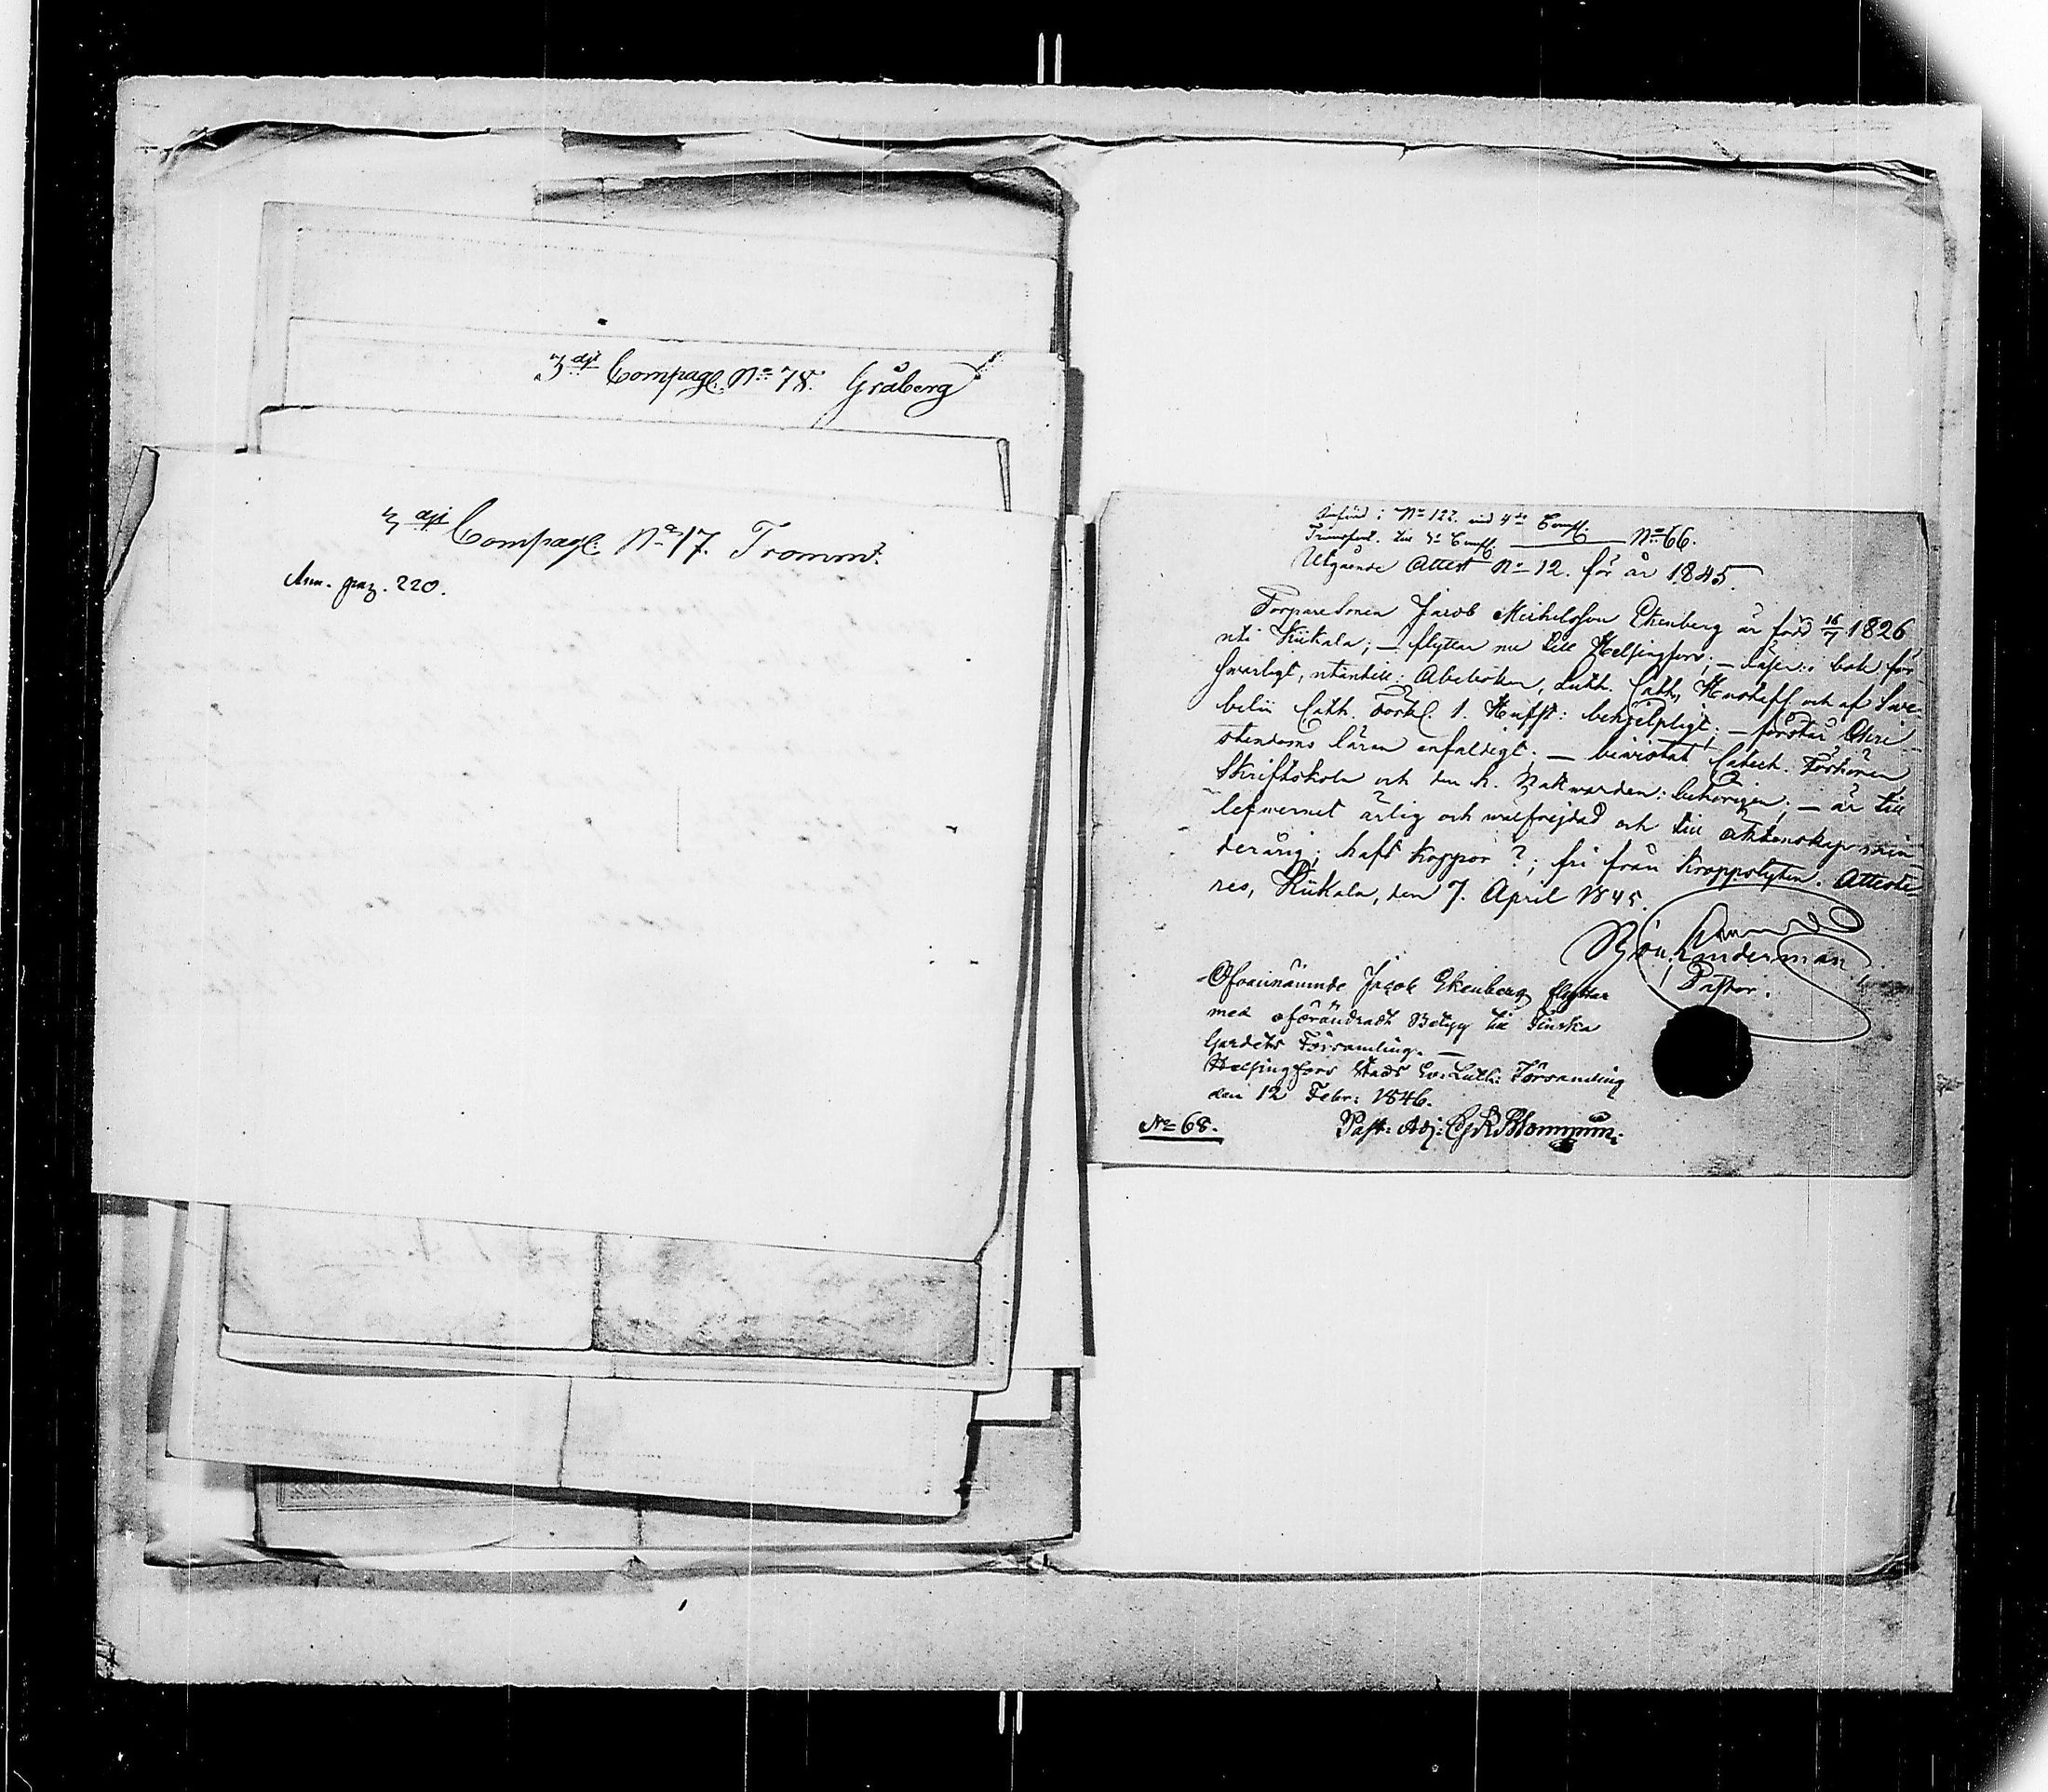 3dje Compagl. No 78. Gråberg
3dje Compagl: No 17. Tromm:
Ann. pag. 220.
Införd: No 122. vid 4de Comp.
Transport. till 3e Comp. No 66.
Utgående Attest No 12. för år 1845
Torpare Sonen Jacob Michelsson Ekenberg är född 16/7 1826
uti Kiikala; — flyttar nu till Helsingfors; — läser: i bok för-
svarligt, utantill: Abcboken, Luth. Cath, Hustafl. och af Sve-
belii Cath. Förkl. 1. Hufst: behjelpligt; — förstår Chri-
stendoms läran enfaldigt; — bevistat Catech. Förhören
Skriftskola och den h. Nattvarden: behörigen; — är till
lefvernet ärlig och välfrejdad och till äktenskap min-
derårig; haft koppor?; fri från kroppslyten. Atteste-
res, Kiikala, den 7. April 1845.
Linderman
Pastor.
Ofvannämnde Jacob Ekenberg flyttar
med oförändradt Betyg till Finska
Gardets Församling. —
Helsingfors Stads Ev: Luth: Församling
den 12 Febr: 1846.
No 68.
Past: Adj: